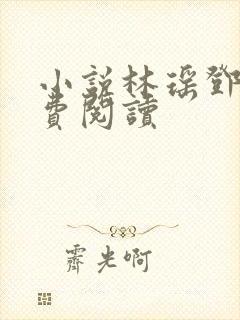 小說林瑤鄧
費閱讀
霽光啊